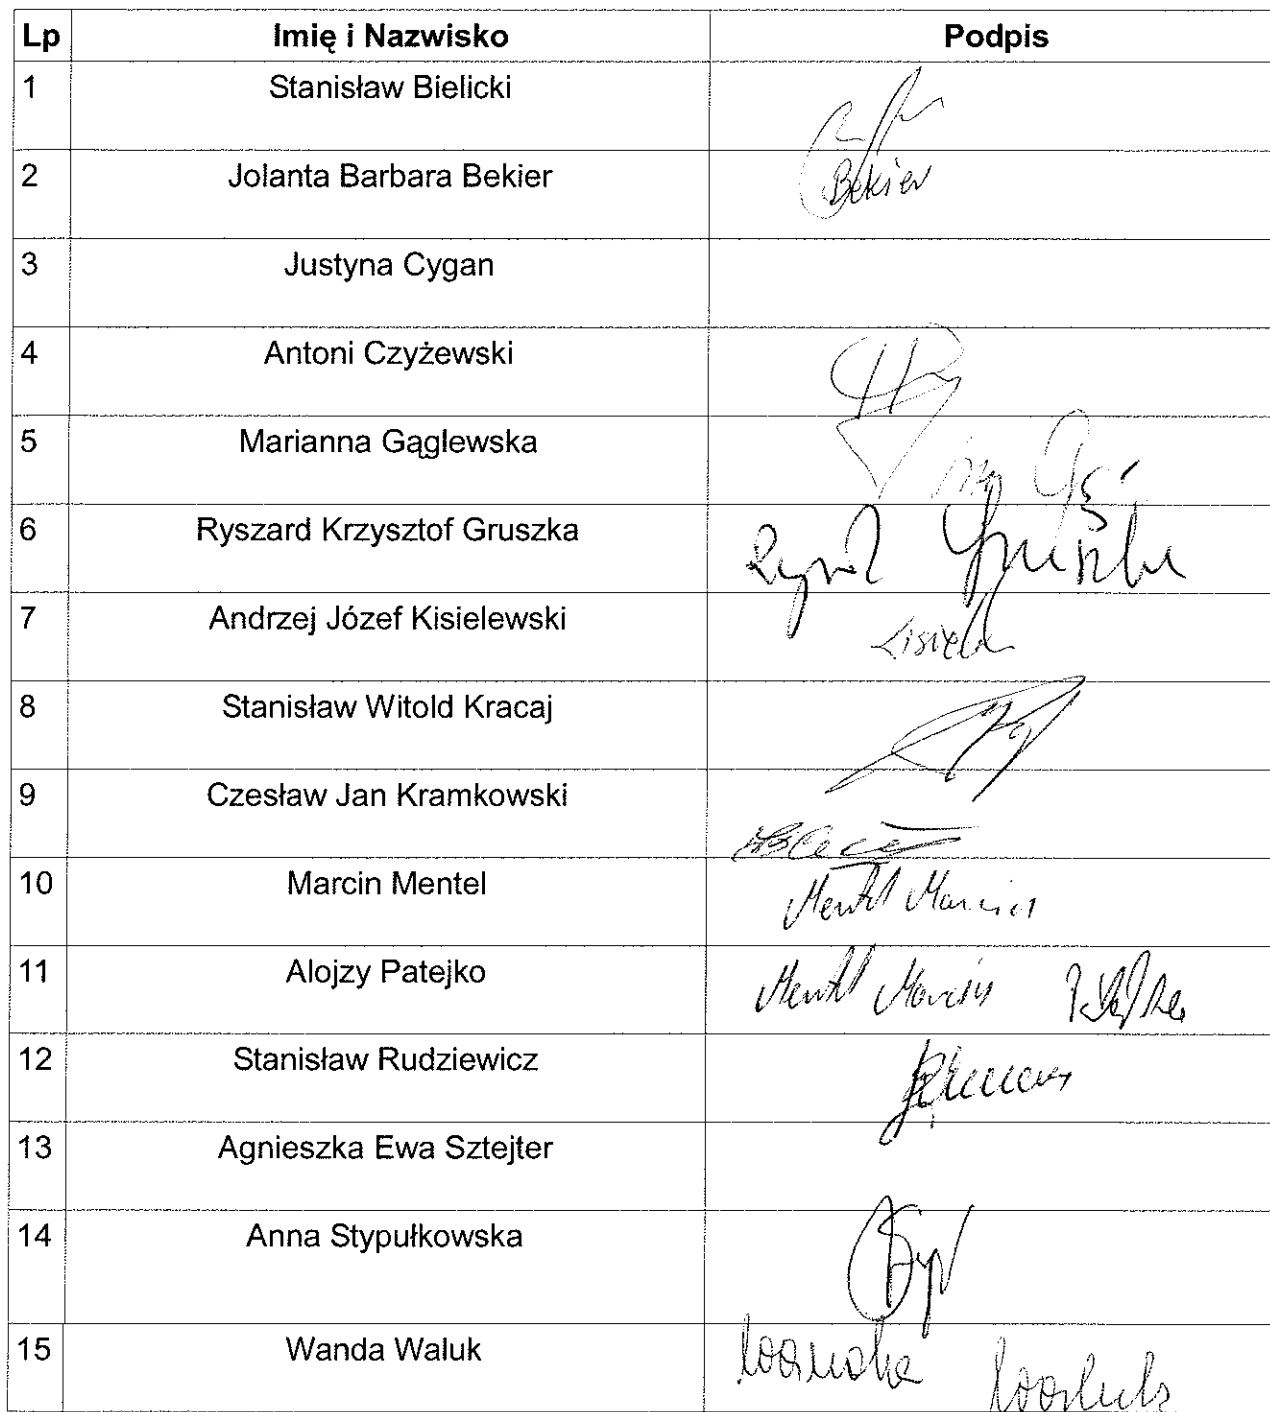 Lp Imię i Nazwisko Podpis
1 Stanisław Bielicki
2 Jolanta Barbara Bekier Bekier
3 Justyna Cygan
4 Antoni Czyżewski
5 Marianna Gąglewska
6 Ryszard Krzysztof Gruszka
7 Andrzej Józef Kisielewski
8 Stanisław Witold Kracaj
9 Czesław Jan Kramkowski
10 Marcin Mentel Mentel Marcin
11 Alojzy Patejko Mentel Marcin
12 Stanisław Rudziewicz
13 Agnieszka Ewa Sztejter
14 Anna Stypułkowska
15 Wanda Waluk Wanda Waluk